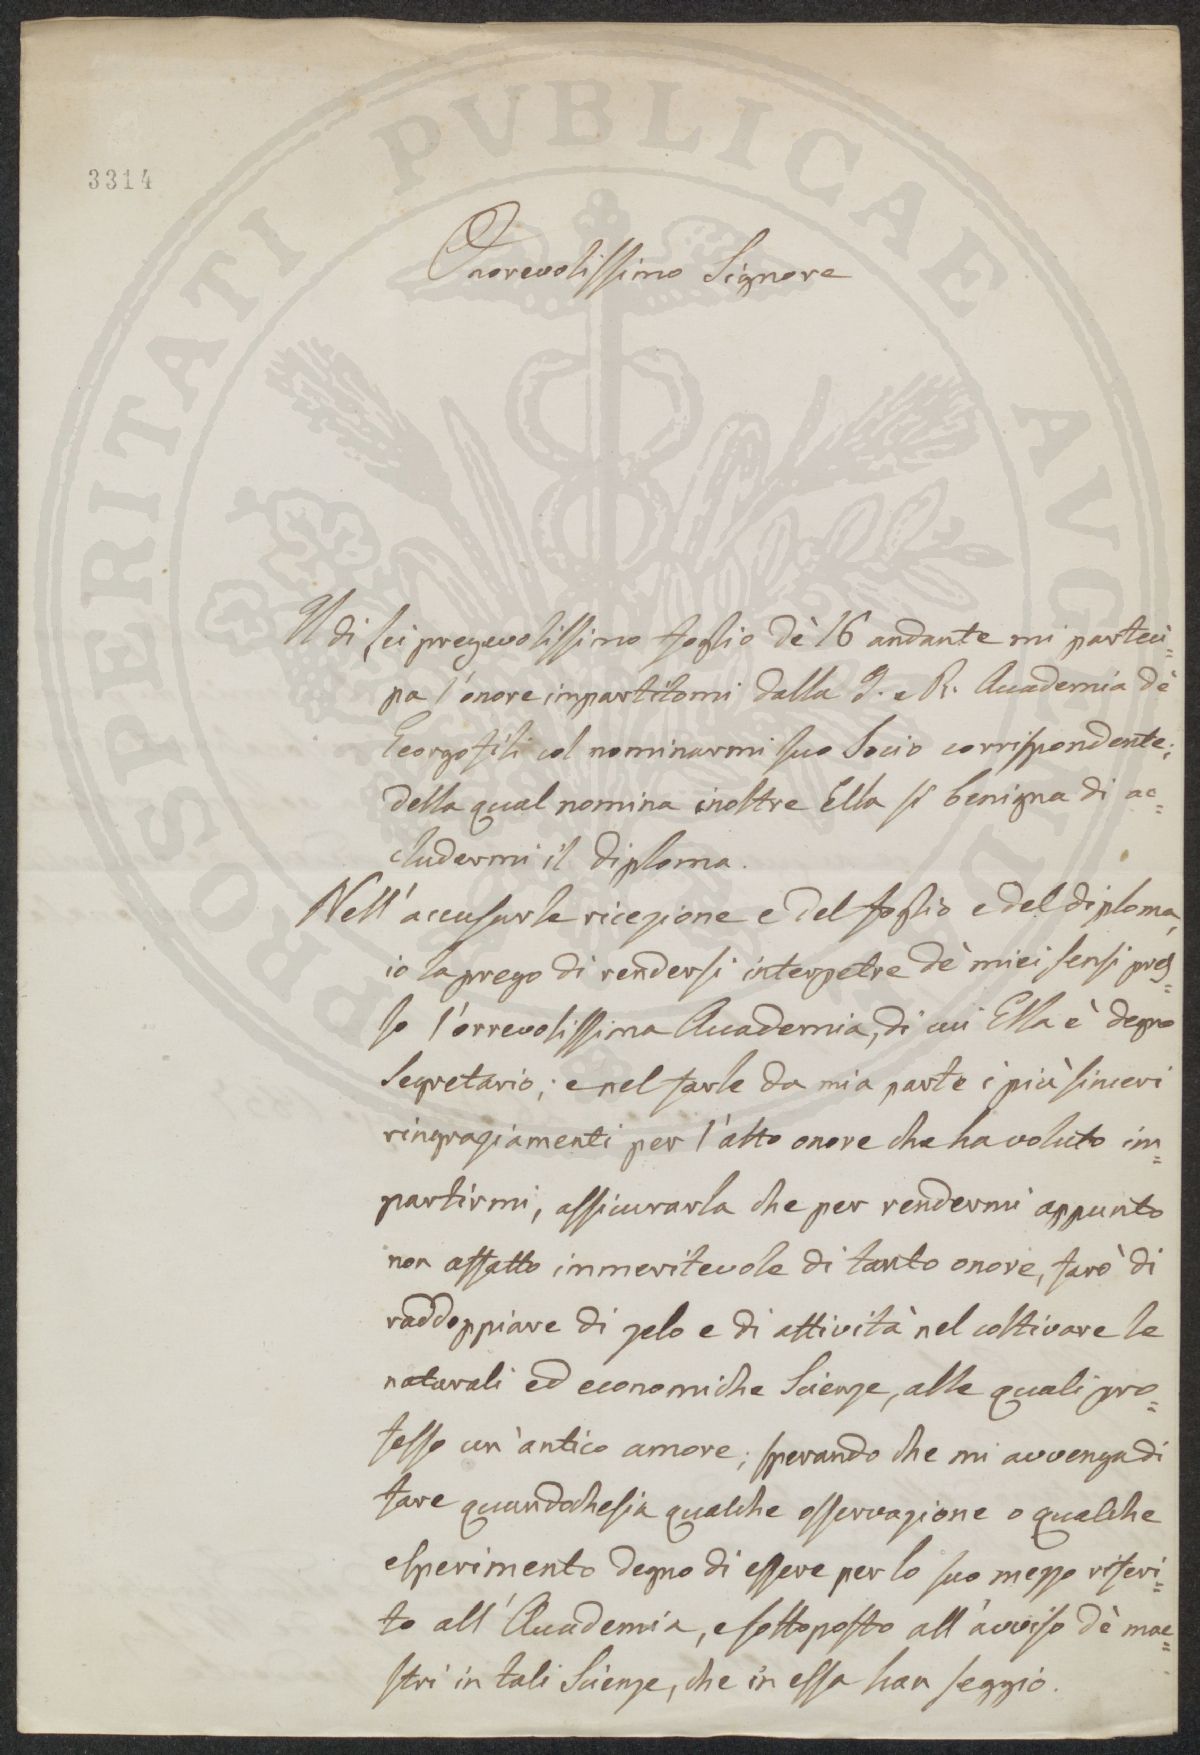 3314
PROSPERITATI PVBLICAE AVGENDAE
Onorevolissimo Signore
Il di Lei pregevolissimo foglio dè 16 andante mi parteci=
pa l'onore impartitomi dalla I. e R. Accademia dè
Georgofili col nominarmi suo Socio corrispondente;
della qual nomina inoltre Ella si benigna di ac=
cludermi il diploma.
Nell'accusarle ricezione e del foglio e del diploma,
io la prego di rendersi interpetre dè miei sensi pres=
so l'orrevolissima Accademia, di cui Ella è degno
Segretario; e nel farle da mia parte i più sinceri
ringraziamenti per l'alto onore che ha voluto im=
partirmi, assicurarla che per rendermi appunto
non affatto immeritevole di tanto onore, farò di
raddoppiare di zelo e di attività nel coltivare le
naturali ed economiche Scienze, alle quali pro=
fesso un'antico amore; sperando che mi avvenga di
fare quandochesia qualche osservazione o qualche
esperimento degno di essere per lo suo mezzo riferi=
to all'Accademia, e sottoposto all'avviso dè mae=
stri in tali Scienze, che in essa han seggio.